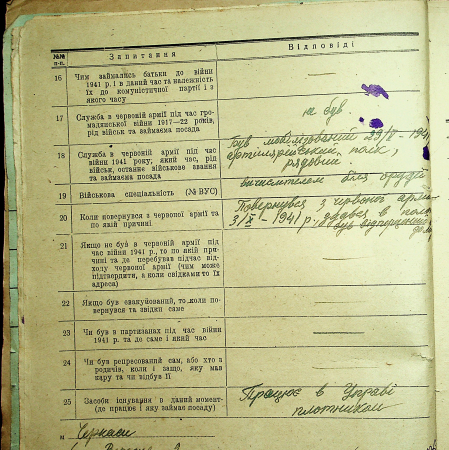 №№ п-п.
Запитання
Відповіді
16 Чим займались батьки до війни
1941 р. і в даний час та належність
їх до комуністичної партії і з
якого часу
17 Служба в червоній армії під час гро-
мадянської війни 1917—22 років,
рід військ та займаєма посада
не був.
18 Служба в червоній армії під час
війни 1941 року, який час, рід
військ, останнє військове звання
та займаєма посада
Був мобілізований
артилерійський полк,
рядовий.
19 Військова спеціяльність (№ ВУС)
20 Коли повернувся з червоної армії та
по якій причині
Повернувся з червоної армії
1941 р. здався в полон
був відпущений
21 Якщо не був в червоній армії під
час війни 1941 р., то по якій при-
чині та де перебував підчас від-
ходу червоної армії (чим може
підтвердити, а коли свідками то їх
адреса)
22 Якщо був евакуйований, то коли по-
вернувся та звідки саме
23 Чи був в партизанах під час війни
1941 р. та де саме і який час
24 Чи був репресований сам, або хто з
родичів, коли і защо, яку мав
кару та чи відбув її
25 Засоби існування в даний момент
(де працює і яку займає посаду)
Працює в Управі
плотником
м Черкаси